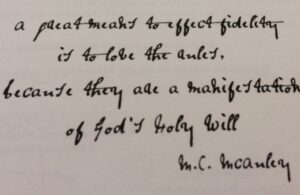 a great means to effect fidelity
is to love the rules,
because they are a manifestation
of God's Holy Will
M.C. McAuley